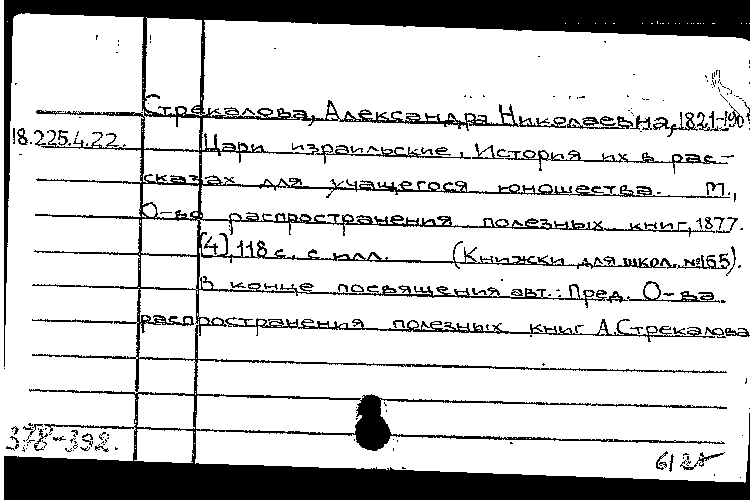 Стрекалова, Александра Николаевна, 1821-190
18.225.4.22. Цари израильские. История их в рас-
сказах для учащегося юношества. М.,
О-во распространения полезных книг, 1877.
[4], 118 с. с илл. (Книжки для школ. №165).
В конце посвящения авт.: Пред. О-ва
распространения полезных книг А.Стрекалова
378-392.